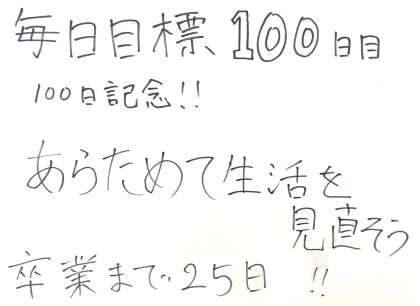 毎日目標100日目
100日記念!!
あらためて生活を
見直そう
卒業まで25日 !!